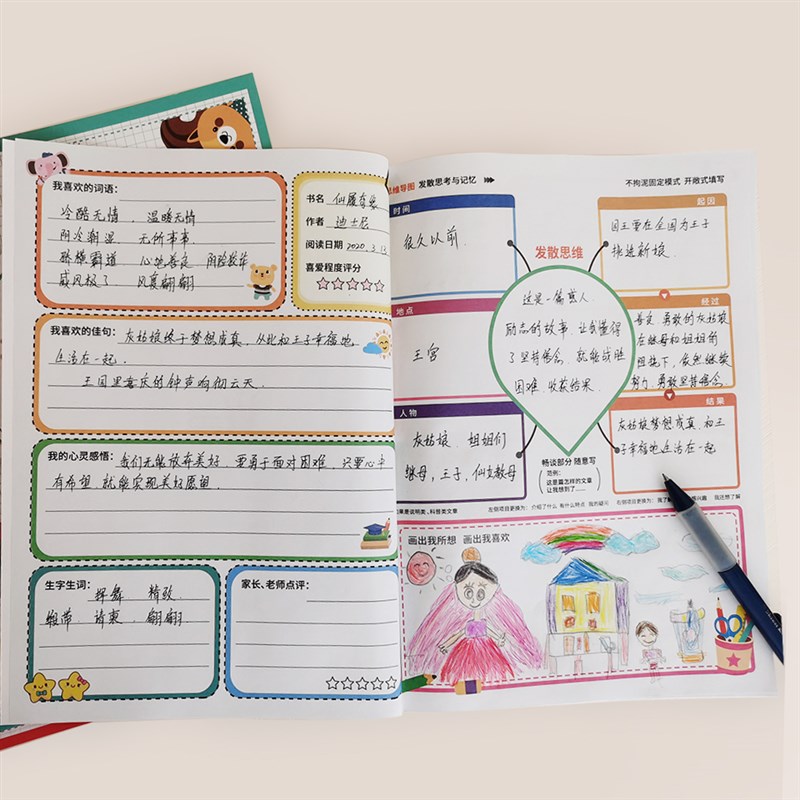 我喜欢的词语:
冷酷无情 、 温暖无情
阴冷潮湿 无所事事
骄横霸道 心地善良 阴险狡诈
威风极了 风度翩翩
书名 仙履奇缘
作者 迪士尼
阅读日期 2020.3.13
喜爱程度评分
我喜欢的佳句: 灰姑娘终于梦想成真,从此和王子幸福地
生活在一起。
王国里喜庆的钟声响彻云天.
我的心灵感悟: 我们无能放弃美好 要勇于面对困难,只要心中
有希望 就能实现美好愿望.
生字生词:
精致
缎带、请柬、翩翩.
家长、老师点评:
思维导图 发散思考与记忆
不拘泥固定模式 开敞式填写
时间
很久以前.
地点
王宫
人物
灰姑娘、姐姐们
继母,王子,仙女教母
发散思维
这是一篇感人、
励志的故事,让我懂得
了坚持信念,就能战胜
困难,收获结果.
起因
国王要在全国为王子
挑选新娘.
经过
善良、勇敢的灰姑娘
在继母和姐姐们
阻挠下,依然继续
努力,勇敢坚持信念.
结果
灰姑娘梦想成真,和王
子幸福地生活在一起
畅谈部分 随意写
范例:
这是篇怎样的文章
让我想到了......
如果是说明类、科普类文章
左侧项目更换为: 介绍了什么 有什么特点 我的疑问
右侧项目更换为: 我了解 感兴趣 我还想了解
画出我所想 画出我喜欢